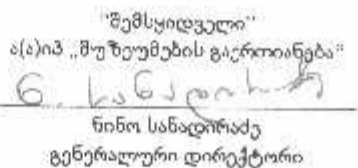 "შემსყიდველი"
ა(ა)იპ „მუზეუმების გაერთიანება"
ნ. სანადირაძე
ნინო სანადირაძე
გენერალური დირექტორი